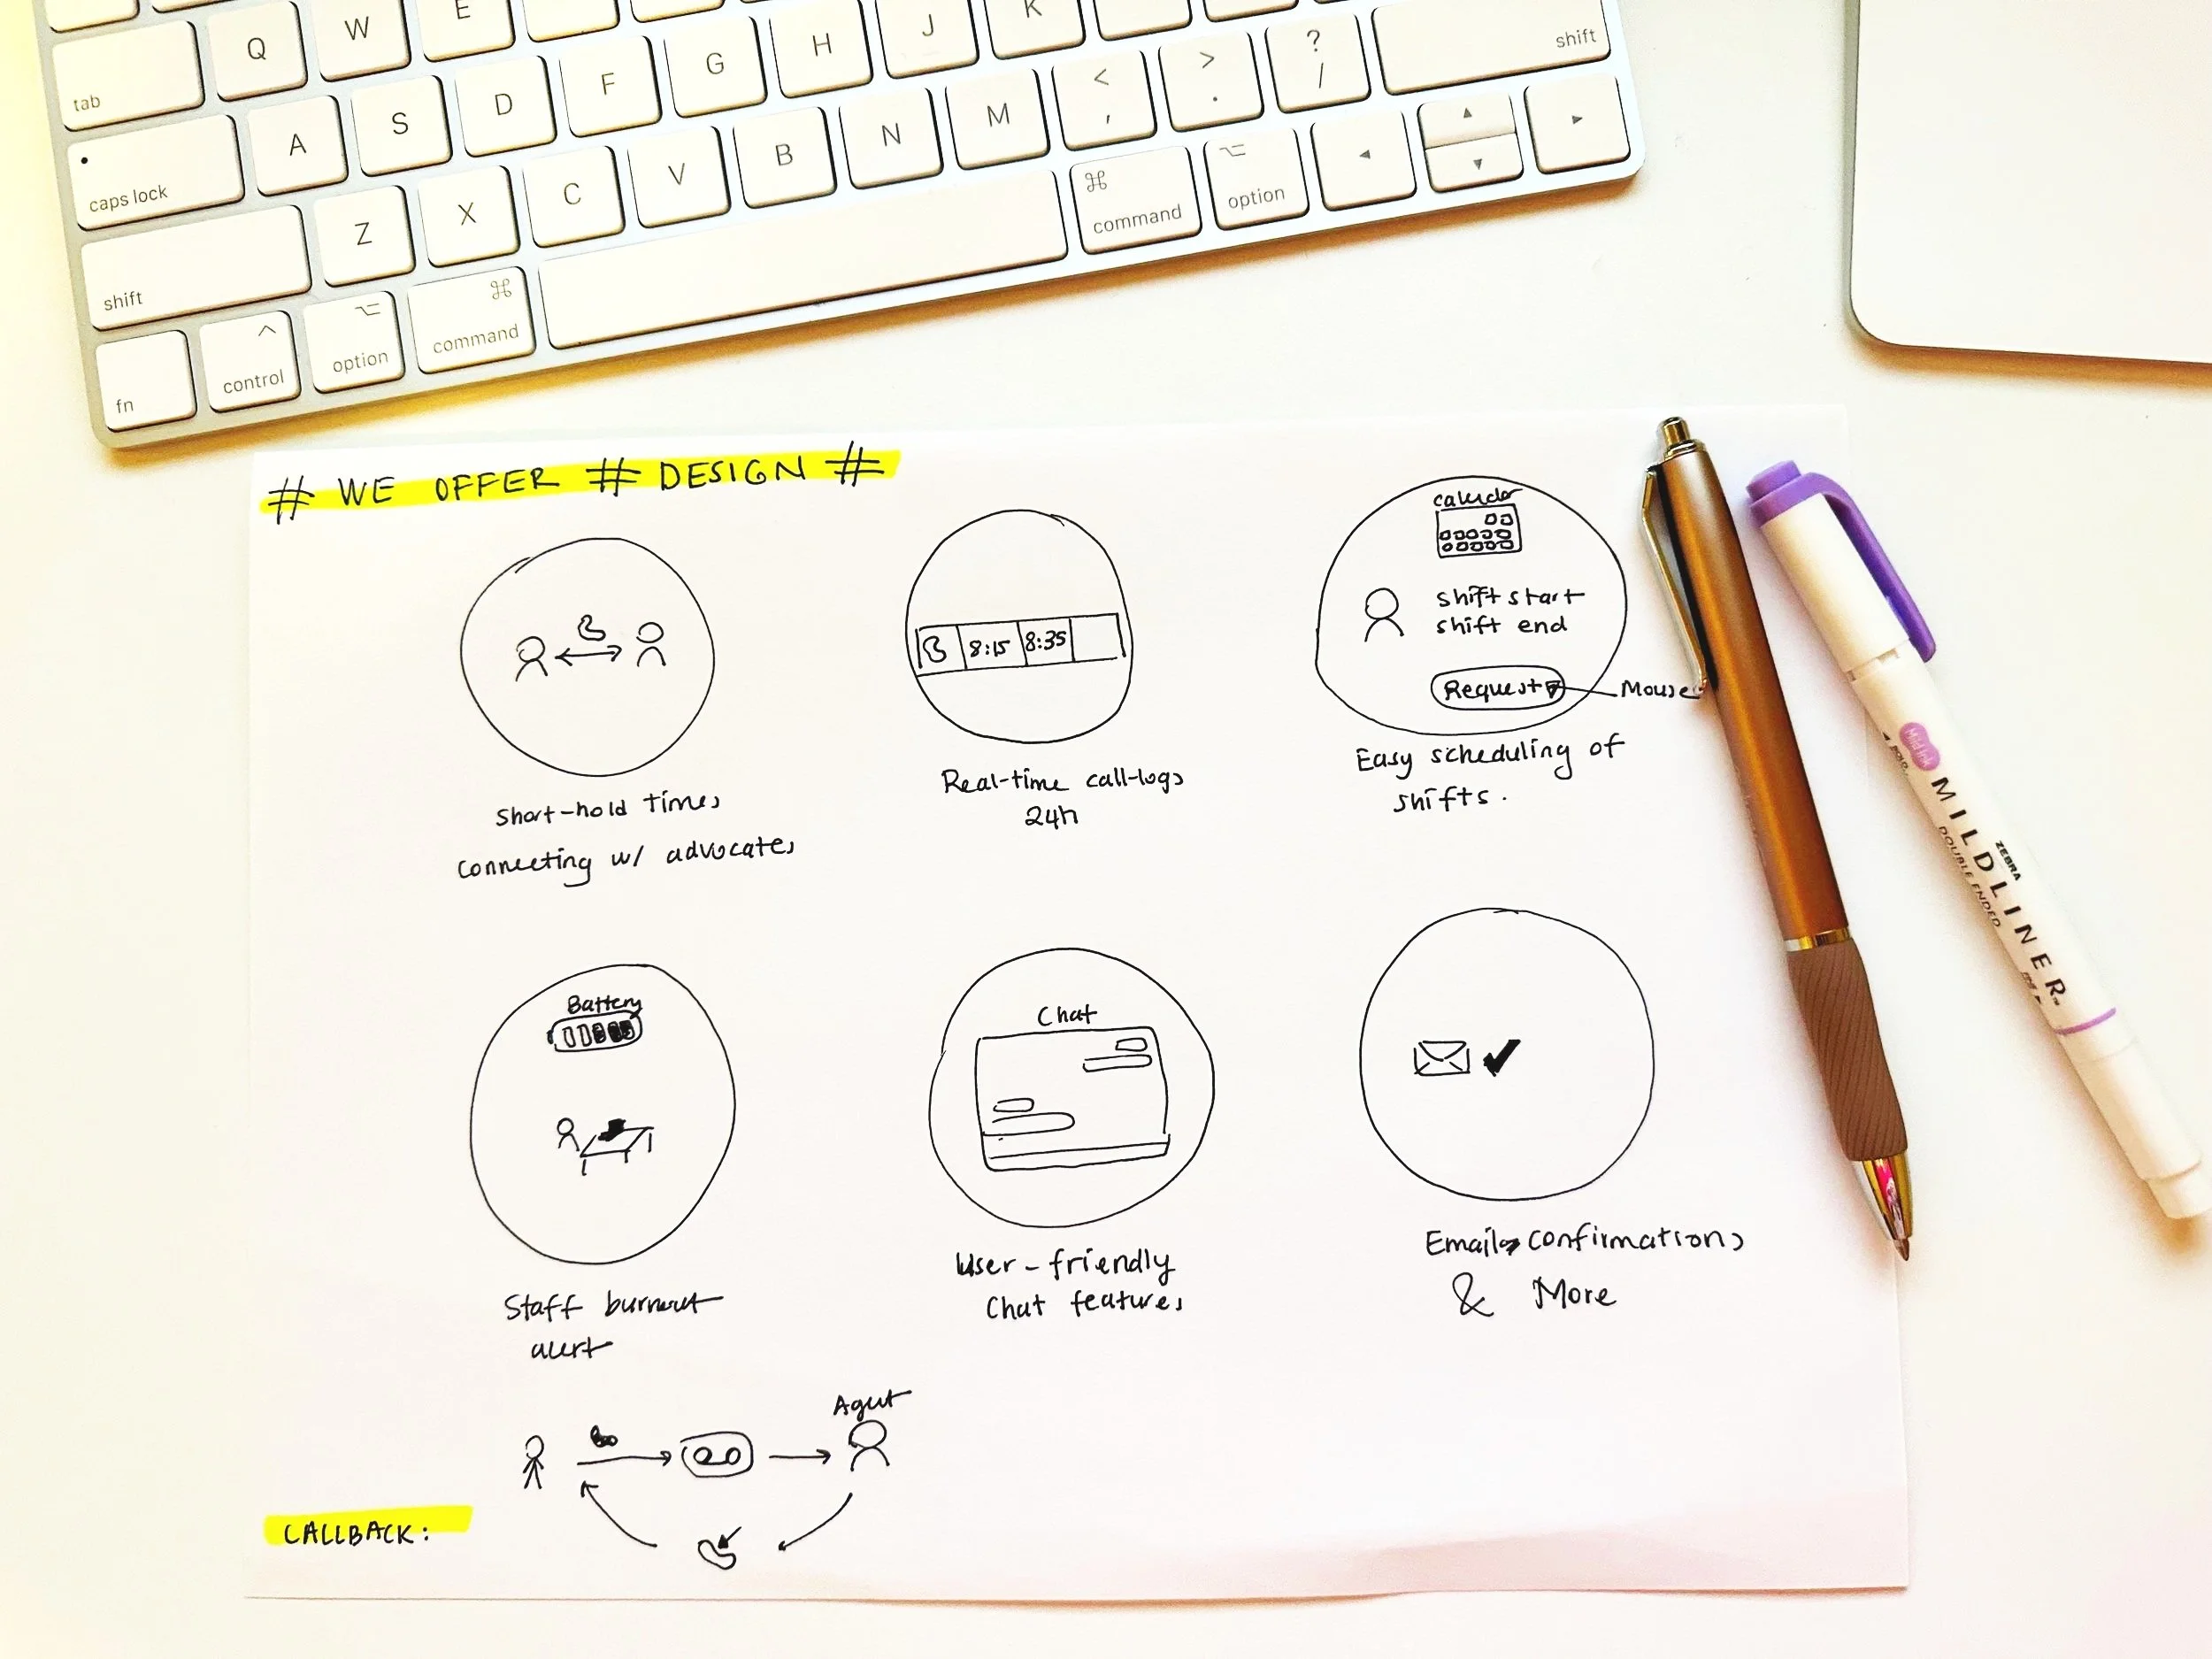 E
K
tab Q W J
H ? / shift
G > .
F < ,
caps lock A S D
M
N
B
V
C
X
shift Z
⌘ command ⌥ option
⌘ command
⌥ option
^ control
fn
# WE OFFER # DESIGN #
calender
shift start
shift end
Request
Mouse
8:15 8:35
Short-hold times
connecting w/ advocates
Real-time call-logs
24h
Easy scheduling of
shifts.
Battery
Chat
Staff burnout
alert
User-friendly
Chat features
Email confirmations
& More
Agent
CALLBACK:
Mild ink
ZEBRA
MILDLINER
DOUBLE ENDED